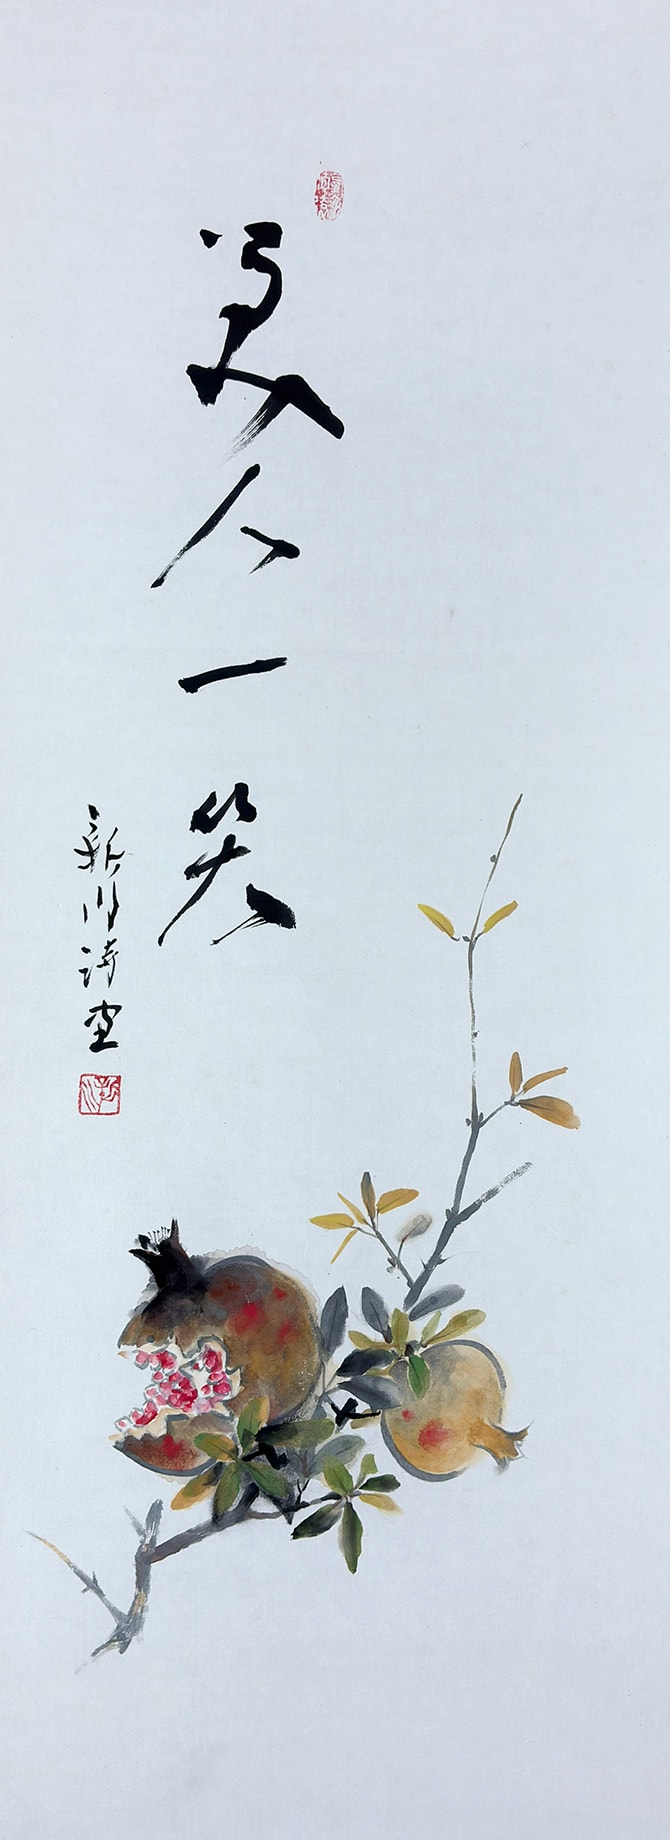 美人一笑
新川詩堂